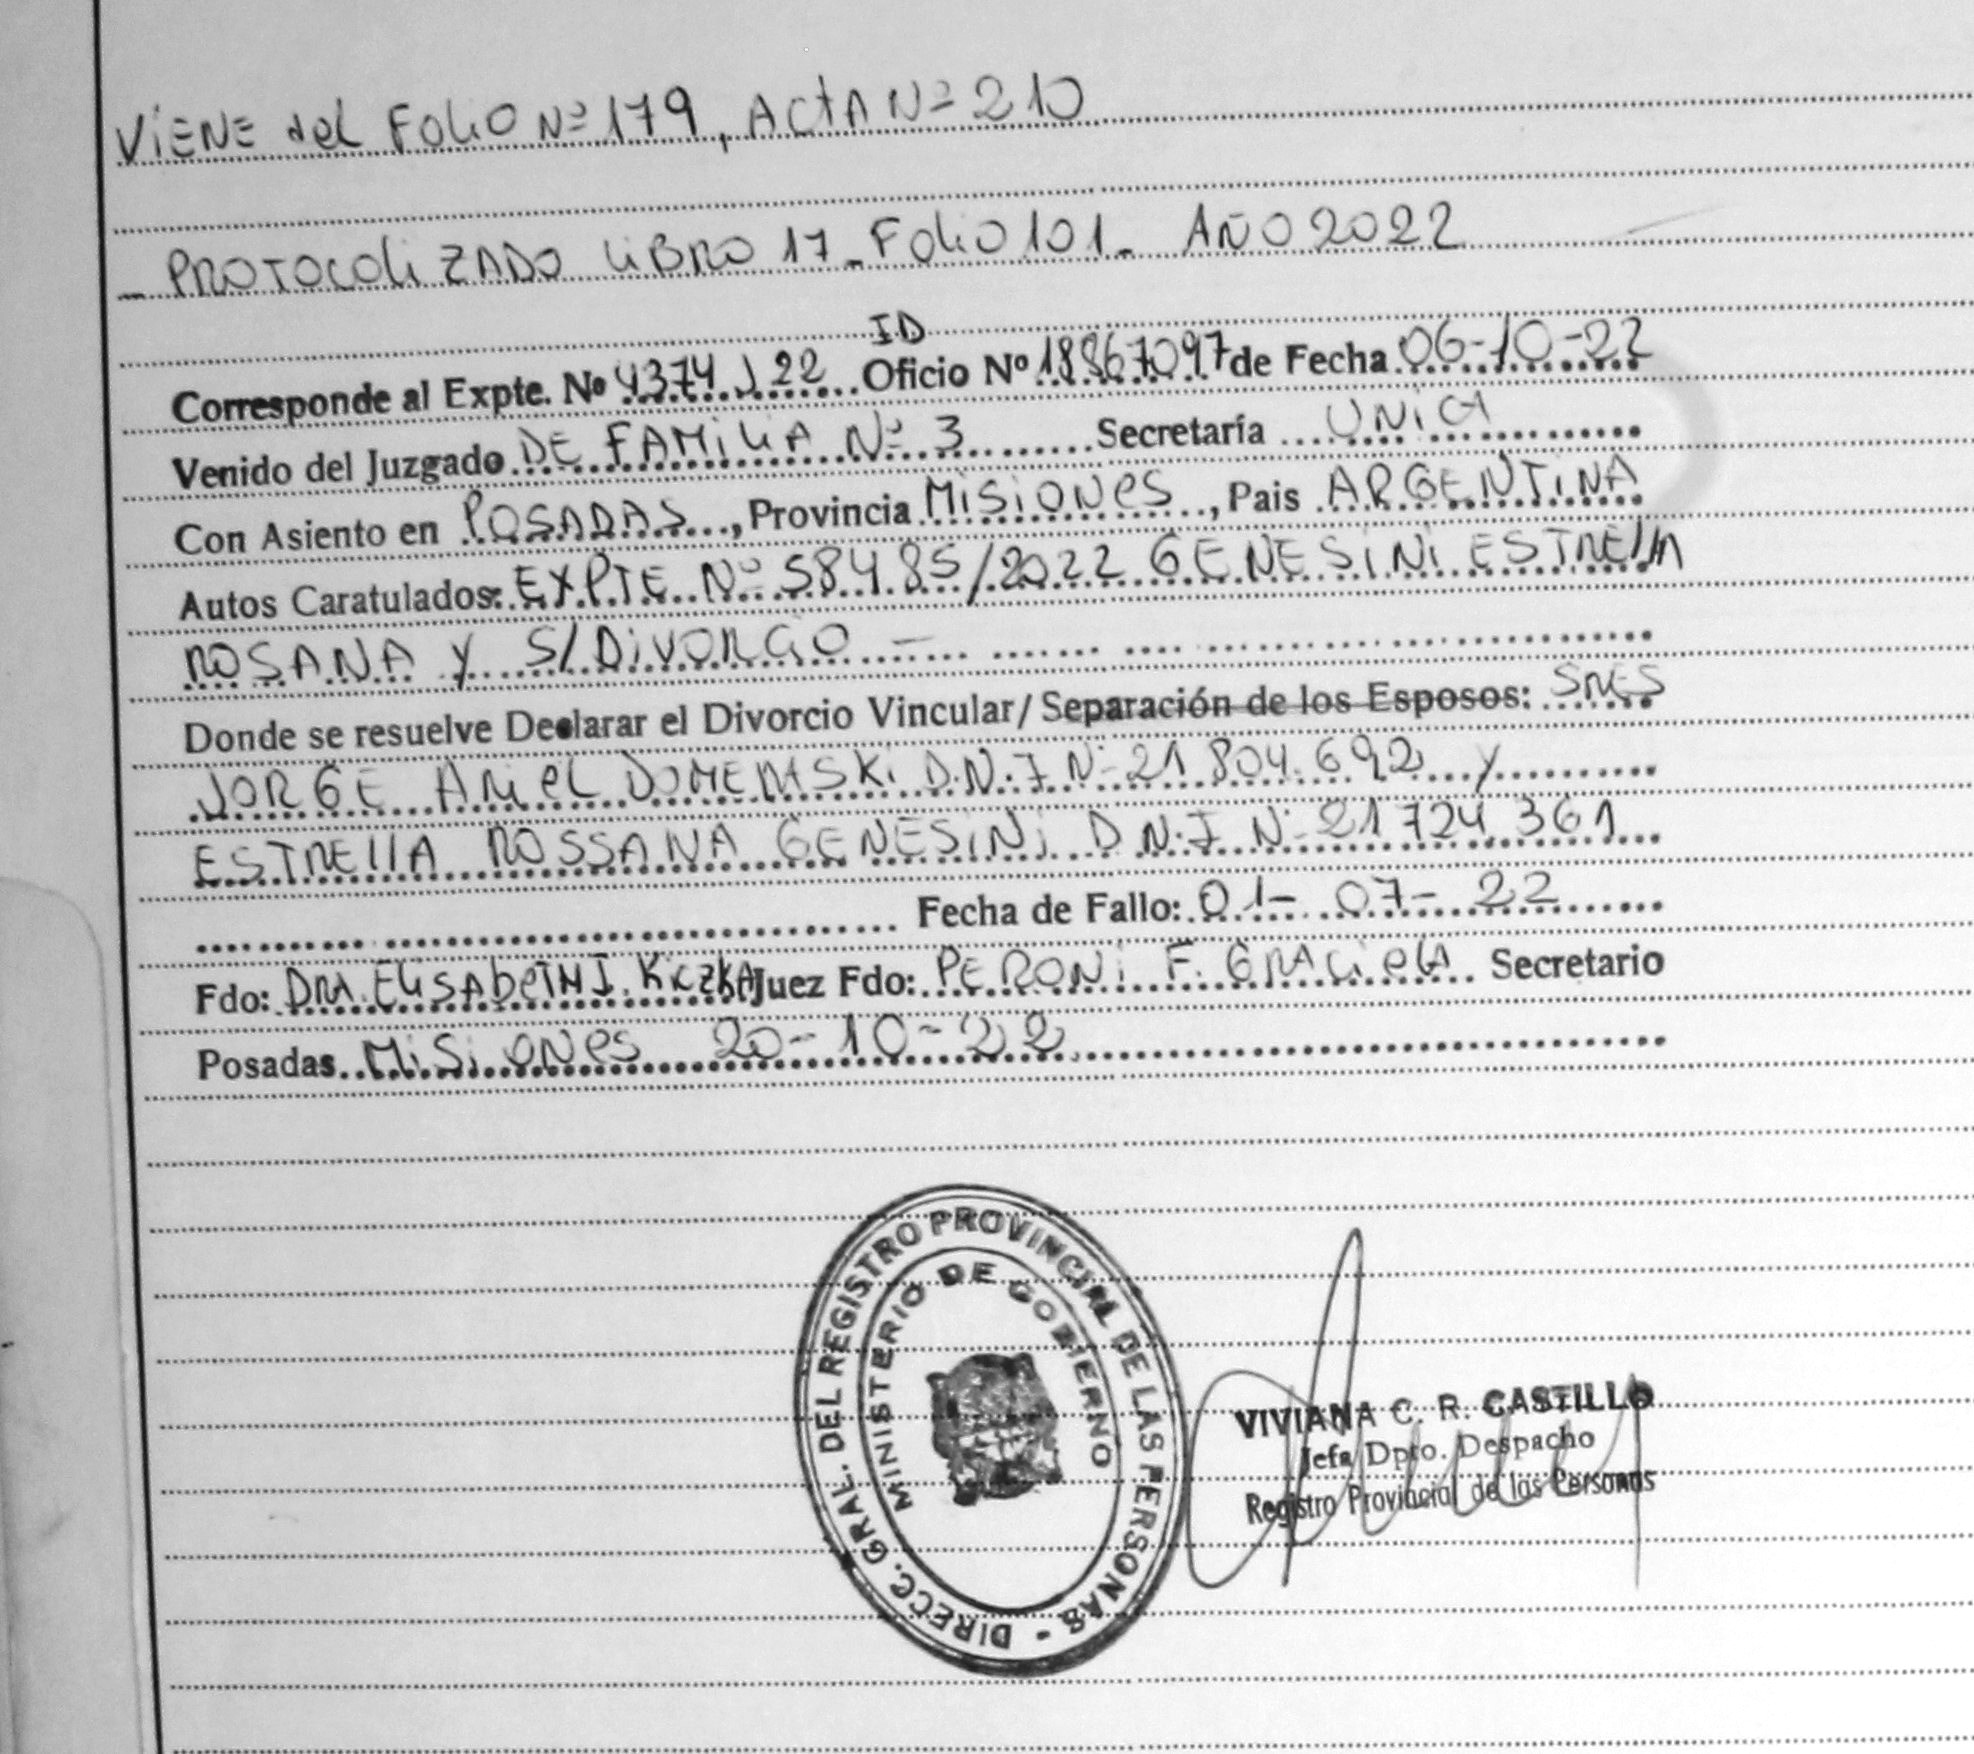 VIENE del FOLIO Nº 179, ACTA Nº 210
- PROTOCOLIZADO LIBRO 17 - FOLIO 101 - AÑO 2022
ID
Corresponde al Expte. Nº 4374 J 22 Oficio Nº 18867097 de Fecha 06-10-22
Venido del Juzgado DE FAMILIA Nº 3 Secretaría UNICA
Con Asiento en POSADAS, Provincia MISIONES, Pais ARGENTINA
Autos Caratulados: EXPTE Nº 58485/2022 GENESINI ESTRELLA
ROSANA Y S/DIVORCIO -
Donde se resuelve Declarar el Divorcio Vincular/ Separación de los Esposos: SRES
JORGE ARIEL DOMENSKI D.N.I Nº 21.804.692 Y
ESTRELLA ROSSANA GENESINI D.N.I Nº 21724361
Fecha de Fallo: 01-07-22
Fdo: DRA. ELISABETH I. KICZKA Juez Fdo: PERONI F. GRACIELA Secretario
Posadas MISIONES 20-10-22
DIRECC. GRAL. DEL REGISTRO PROVINCIAL DE LAS PERSONAS -
MINISTERIO DE GOBIERNO
VIVIANA C. R. CASTILLO
Jefa Dpto. Despacho
Registro Provincial de las Personas